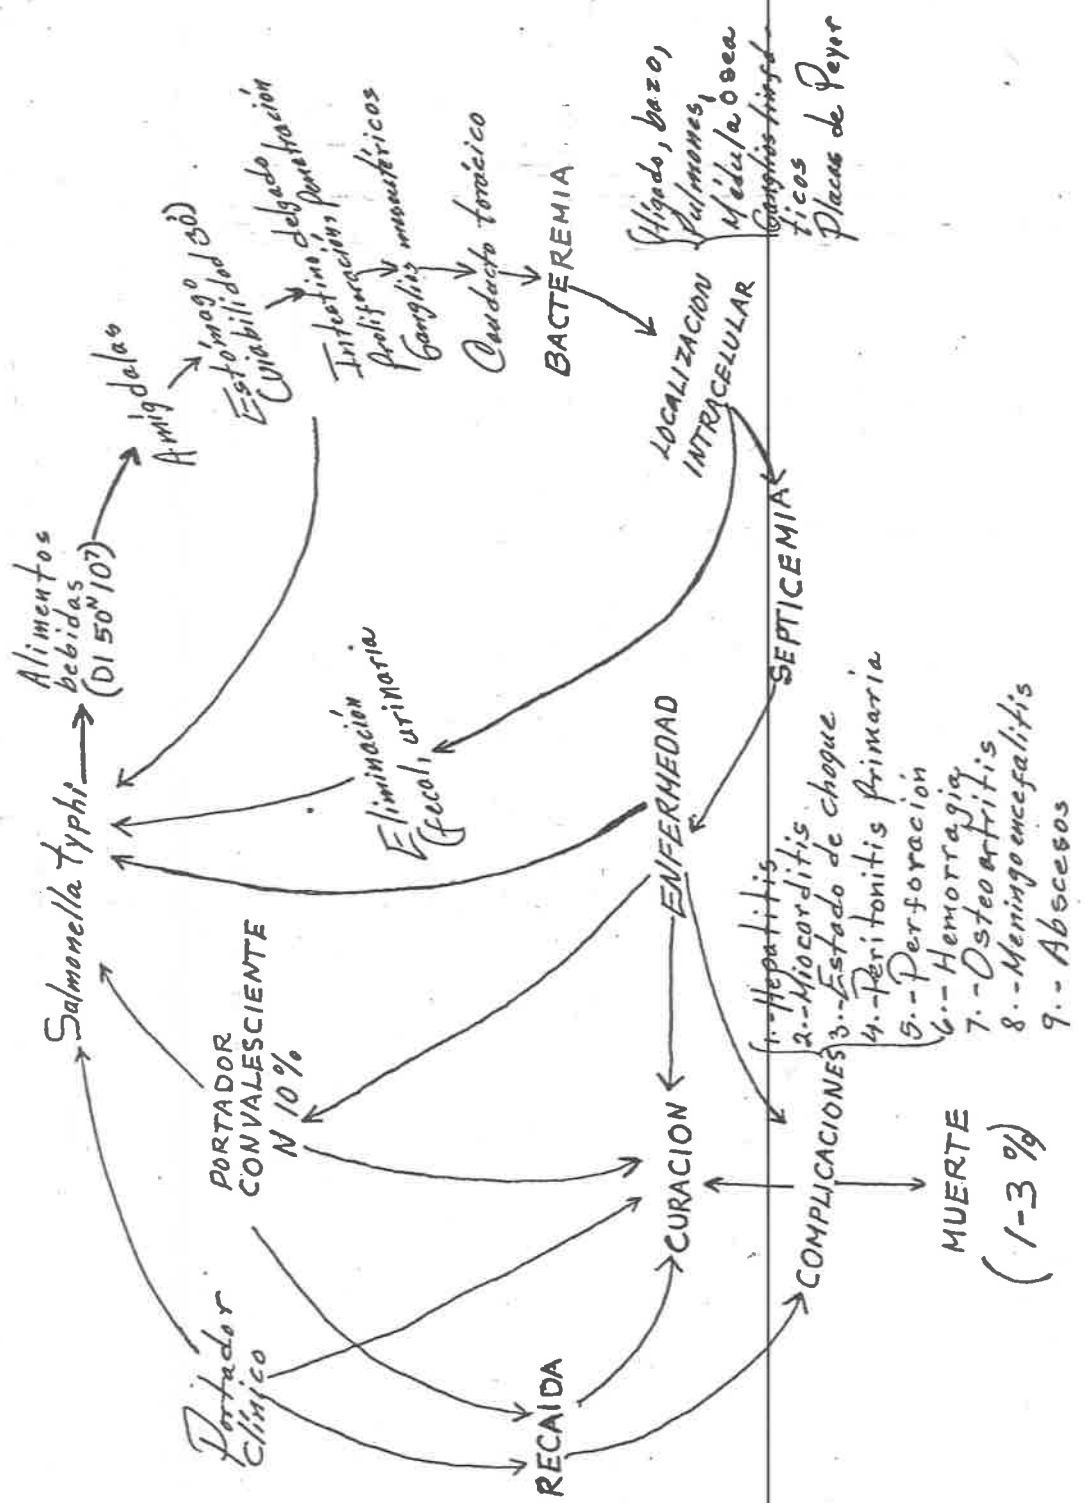 Salmonella typhi
Alimentos
bebidas
(DI 50 N 10⁷)
Amígdalas
Estómago
(viabilidad 30)
Intestino delgado
Proliferación, penetración
Ganglios mesentéricos
Conducto torácico
BACTEREMIA
LOCALIZACION
INTRACELULAR
Hígado, bazo,
pulmones,
Médula ósea
Ganglios linfá-
ticos
Placas de Peyer
SEPTICEMIA
Eliminación
(fecal, urinaria
ENFERMEDAD
PORTADOR
CONVALESCIENTE
N 10%
Portador
clínico
RECAIDA
CURACION
COMPLICACIONES
1.-Hepatitis
2.-Miocarditis
3.-Estado de choque
4.-Peritonitis Primaria
5.-Perforación
6.-Hemorragia
7.-Osteoartritis
8.-Meningoencefalitis
9.-Abscesos
MUERTE
(1-3 %)